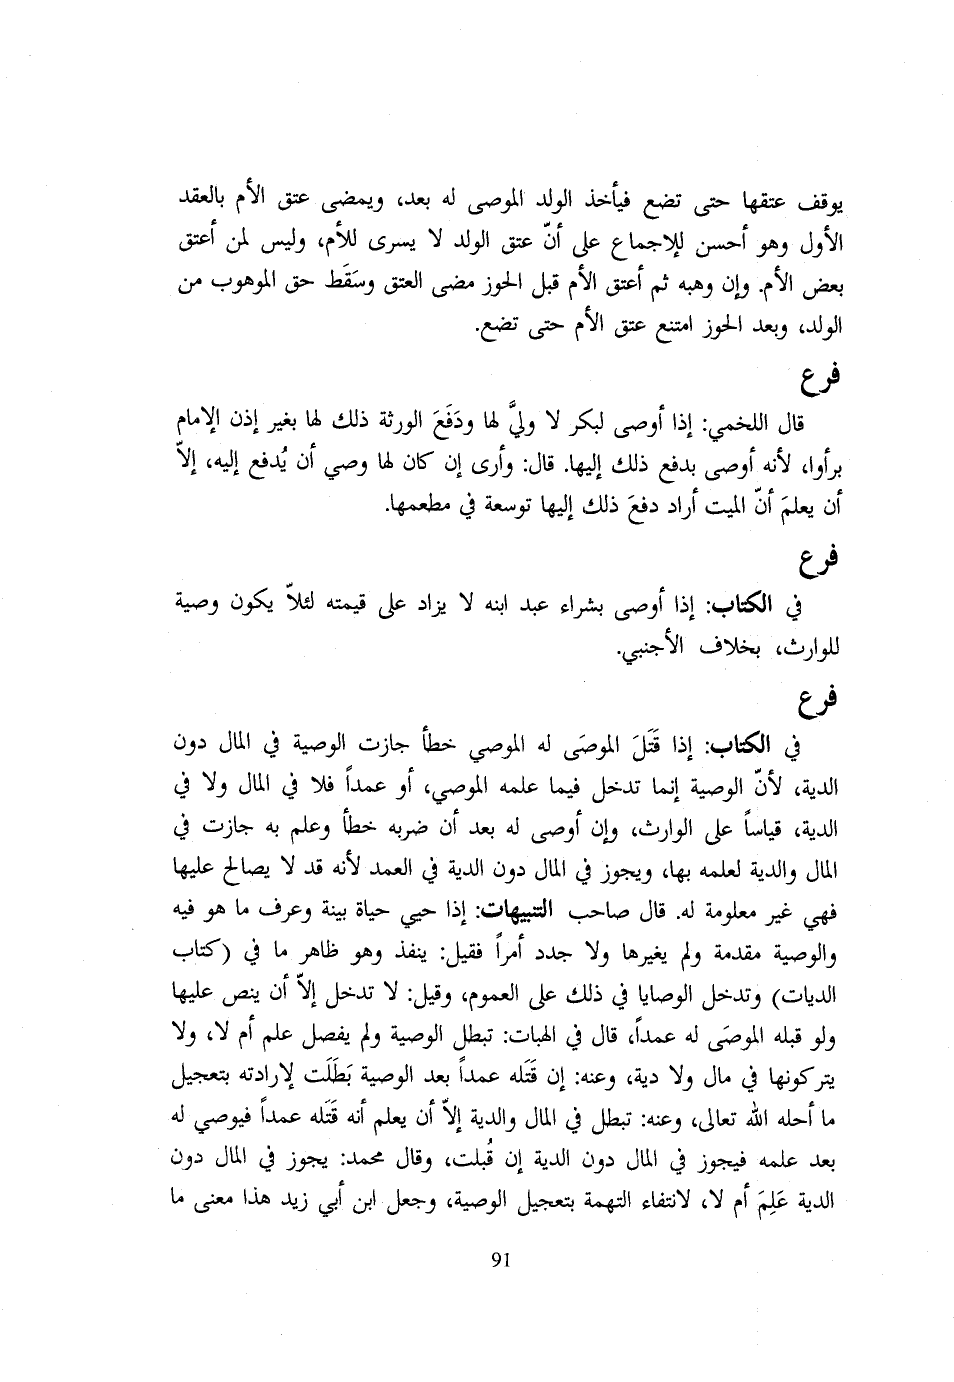 يوقف عتقها حتى تضع فيأخذ الولد الموصى له بعد، ويمضى عتق الأم بالعقد
الأول وهو أحسن للاجماع على أنّ عتق الولد لا يسرى للأم، وليس لمن أعتق
بعض الأم. وإن وهبه ثم أعتق الأم قبل الحوز مضى العتق وسَقَط حق الموهوب من
الولد، وبعد الحوز امتنع عتق الأم حتى تضع.
فرع
قال اللخمي: إذا أوصى لبكر لا وليَّ لها ودَفَعَ الورثة ذلك لها بغير إذن الإمام
برأوا، لأنه أوصى بدفع ذلك إليها. قال: وأرى إن كان لها وصي أن يُدفع إليه، إلاّ
أن يعلمَ أنّ الميت أراد دفعَ ذلك إليها توسعة في مطعمها.
فرع
في الكتاب: إذا أوصى بشراء عبد ابنه لا يزاد على قيمته لئلاّ يكون وصية
للوارث، بخلاف الأجنبي.
فرع
في الكتاب: إذا قَتَلَ الموصَى له الموصي خطأ جازت الوصية في المال دون
الدية، لأنّ الوصية إنما تدخل فيما علمه الموصي، أو عمداً فلا في المال ولا في
الدية، قياساً على الوارث، وإن أوصى له بعد أن ضربه خطأ وعلم به جازت في
المال والدية لعلمه بها، ويجوز في المال دون الدية في العمد لأنه قد لا يصالح عليها
فهي غير معلومة له. قال صاحب التنبيهات: إذا حيي حياة بينة وعرف ما هو فيه
والوصية مقدمة ولم يغيرها ولا جدد أمراً فقيل: ينفذ وهو ظاهر ما في (كتاب
الديات) وتدخل الوصايا في ذلك على العموم، وقيل: لا تدخل إلاّ أن ينص عليها
ولو قبله الموصَى له عمداً، قال في الهبات: تبطل الوصية ولم يفصل علم أم لا، ولا
يتركونها في مال ولا دية، وعنه: إن قَتَله عمداً بعد الوصية بَطَلَت لإرادته بتعجيل
ما أحله الله تعالى، وعنه: تبطل في المال والدية إلاّ أن يعلم أنه قَتَله عمداً فيوصي له
بعد علمه فيجوز في المال دون الدية إن قُبلت، وقال محمد: يجوز في المال دون
الدية عَلِمَ أم لا، لانتفاء التهمة بتعجيل الوصية، وجعل ابن أبي زيد هذا معنى ما
91